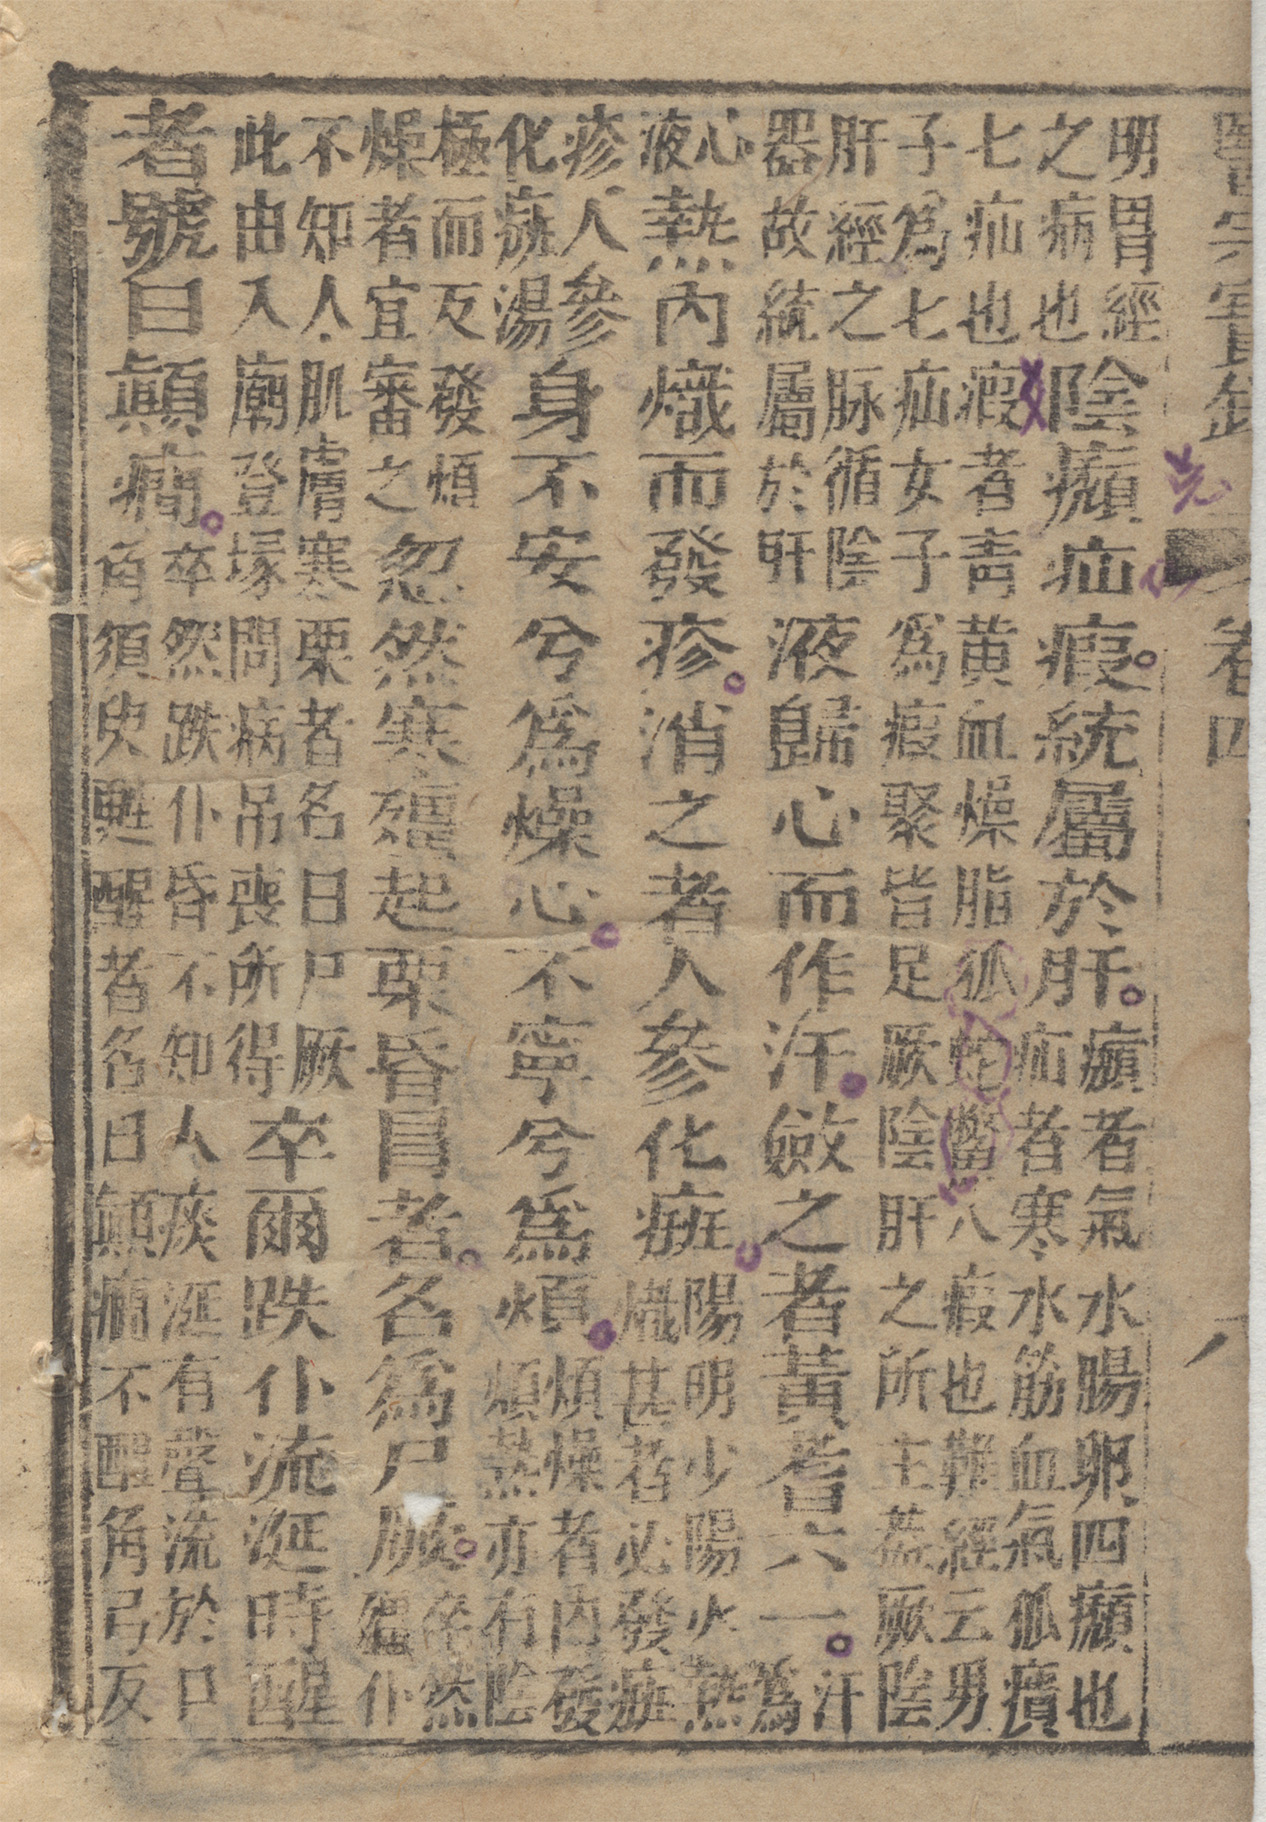 卷四
八
明胃經
之病也
陰癩疝瘕統屬於肝
癩者氣水腸卵四癩也
疝者寒水筋血氣狐㿗
七疝也瘕者青黃血燥脂狐蛇鱉八瘕也難經云男
子爲七疝女子爲瘕聚皆足厥陰肝之所主葢厥陰
肝經之脉循陰
器故統屬於肝
液歸心而作汗斂之者黃耆六一
汗
爲
心
液
熱內熾而發疹消之者人參化斑
陽明少陽火熱
熾甚者必發斑
疹人參
化斑湯
身不安兮爲燥心不寧兮爲煩
煩燥者內發
煩熱亦有陰
極而反發煩
燥者宜審之
忽然寒殭起栗昏冒者名爲尸厥
卒然
殭仆
不知人肌膚寒栗者名曰尸厥
此由入廟登塚問病吊喪所得
卒爾跌仆流涎時醒
者號曰顛癎
卒然跌仆昏不知人痰涎有聲流於口
角須臾甦醒者名曰顛癎不醒角弓反